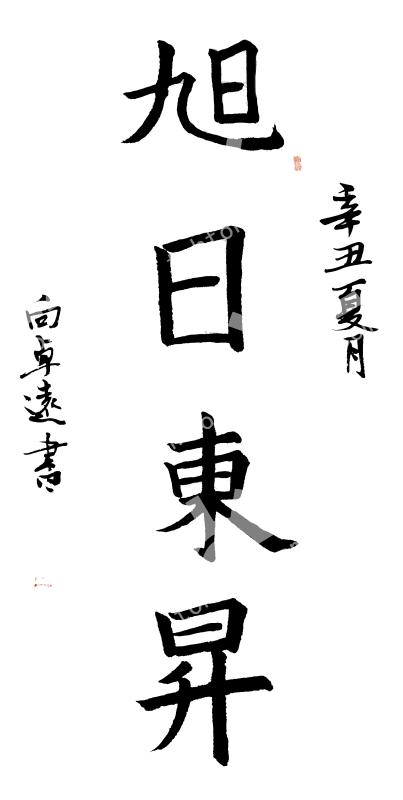 辛丑夏月
旭日東昇
向卓遠書